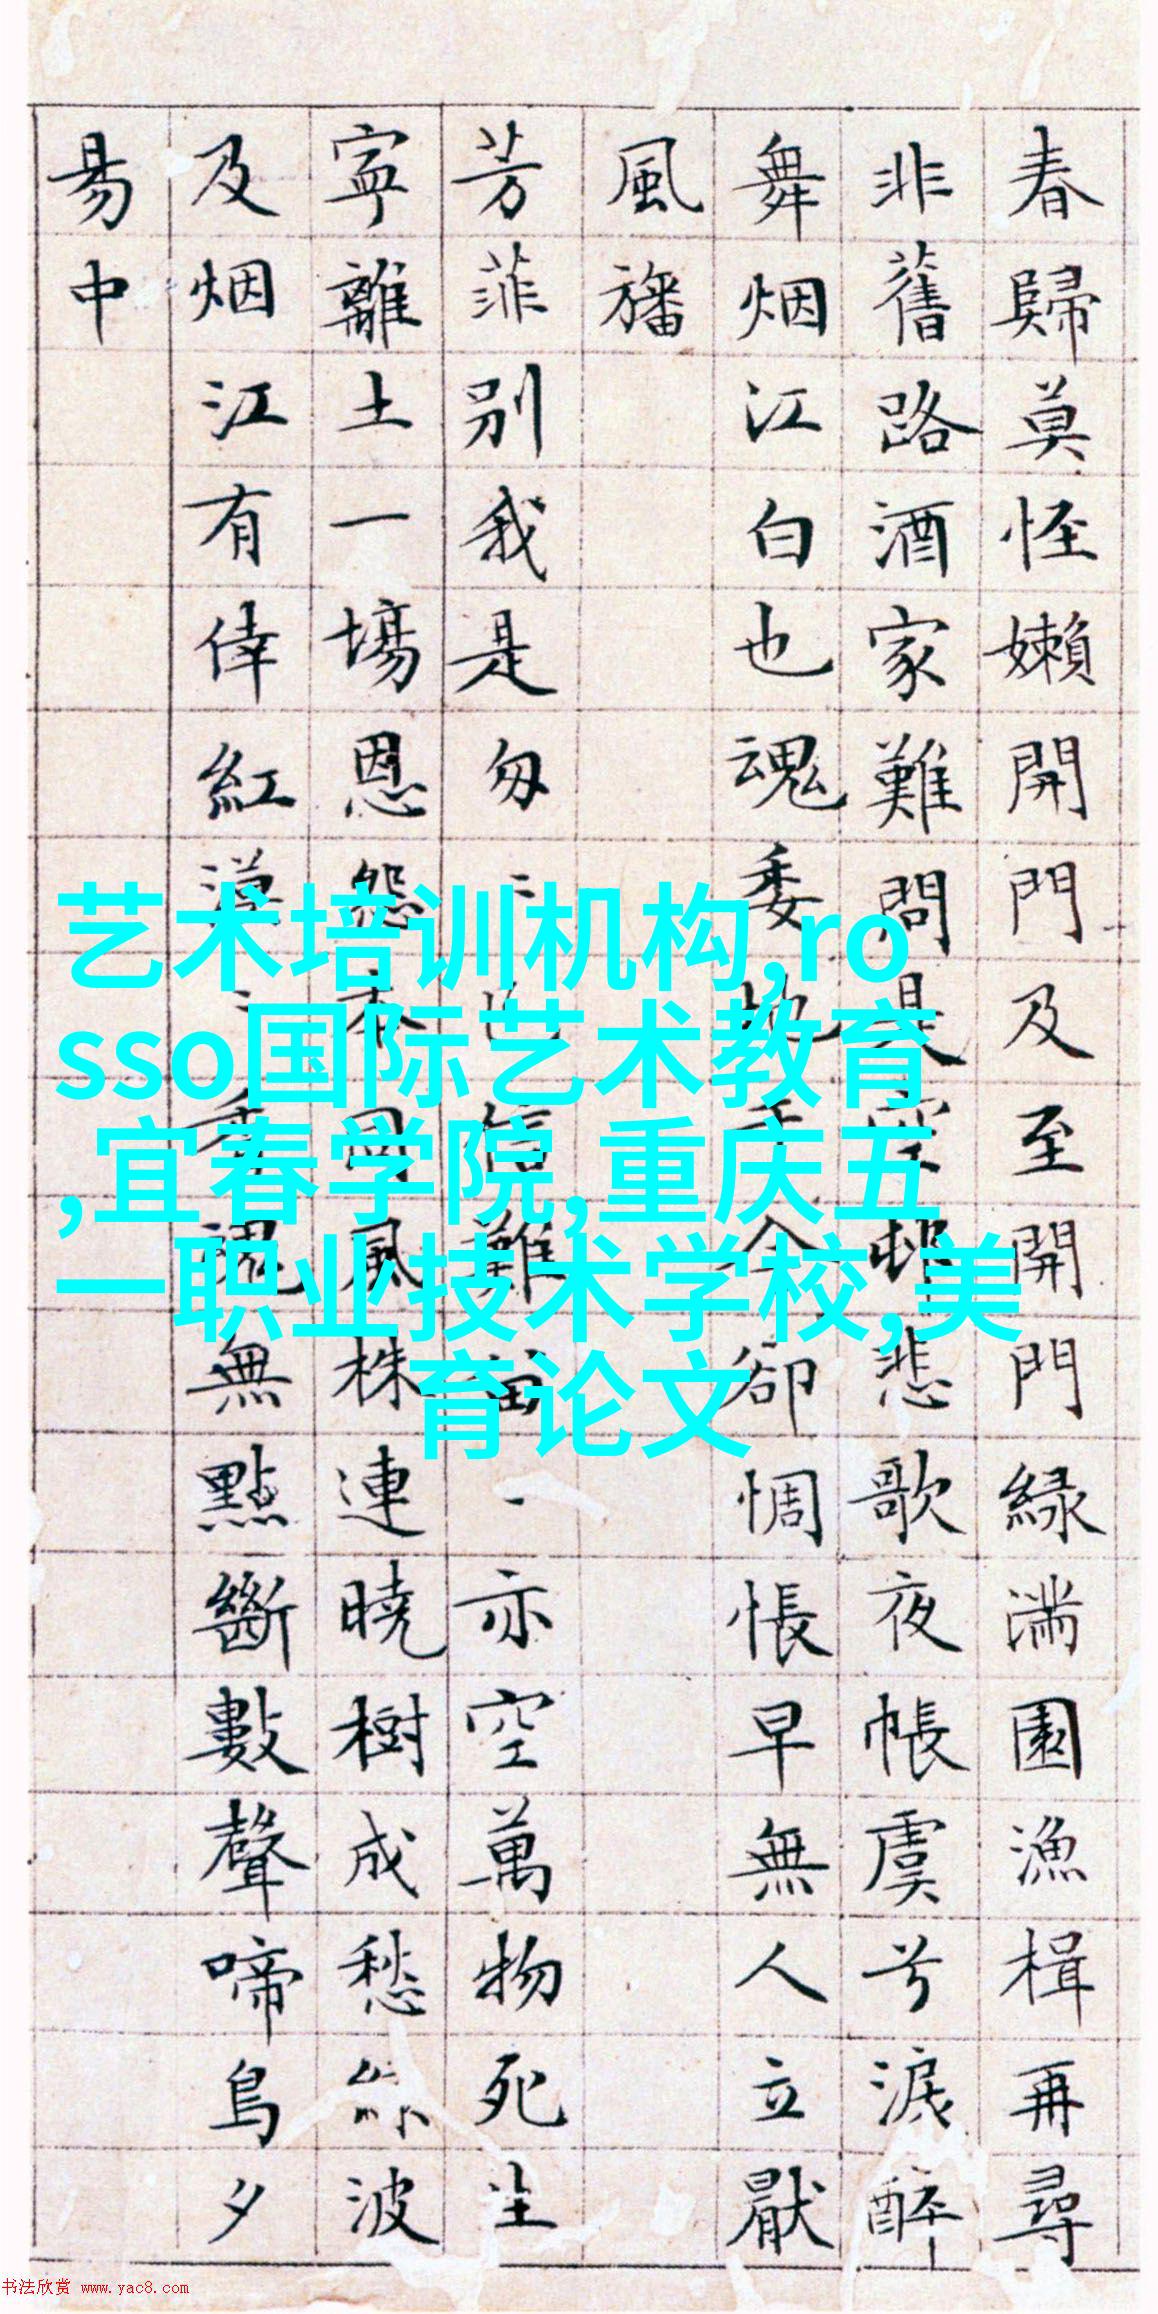 春歸莫怪嬾開門及至開門緑滿園漁楫再尋
非舊路酒家難問是空邨悲歌夜帳虞兮淚醉
舞烟江白也魂委地于今卻惆悵早無人立厭
風旛
芳菲別我是匆〻也信難留一亦空萬物死生
寧離土一場恩怨本同風株連曉樹成愁波
及烟江有倖紅漠〻香魂無點斷數聲啼鳥夕
易中
艺术培训机构,ro
sso国际艺术教育
,宜春学院,重庆五
一职业技术学校,美
育论文
书法欣赏 www.yac8.com